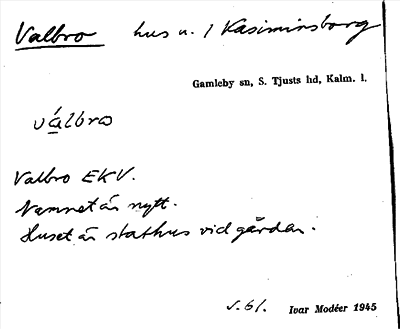 Valbro hus u. / Kasimirsborg
Gamleby sn, S. Tjusts hd, Kalm. l.
válbro
Valbro EKV.
Namnet är nytt.
Huset är stathus vid gården.
s. 61. Ivar Modéer 1945